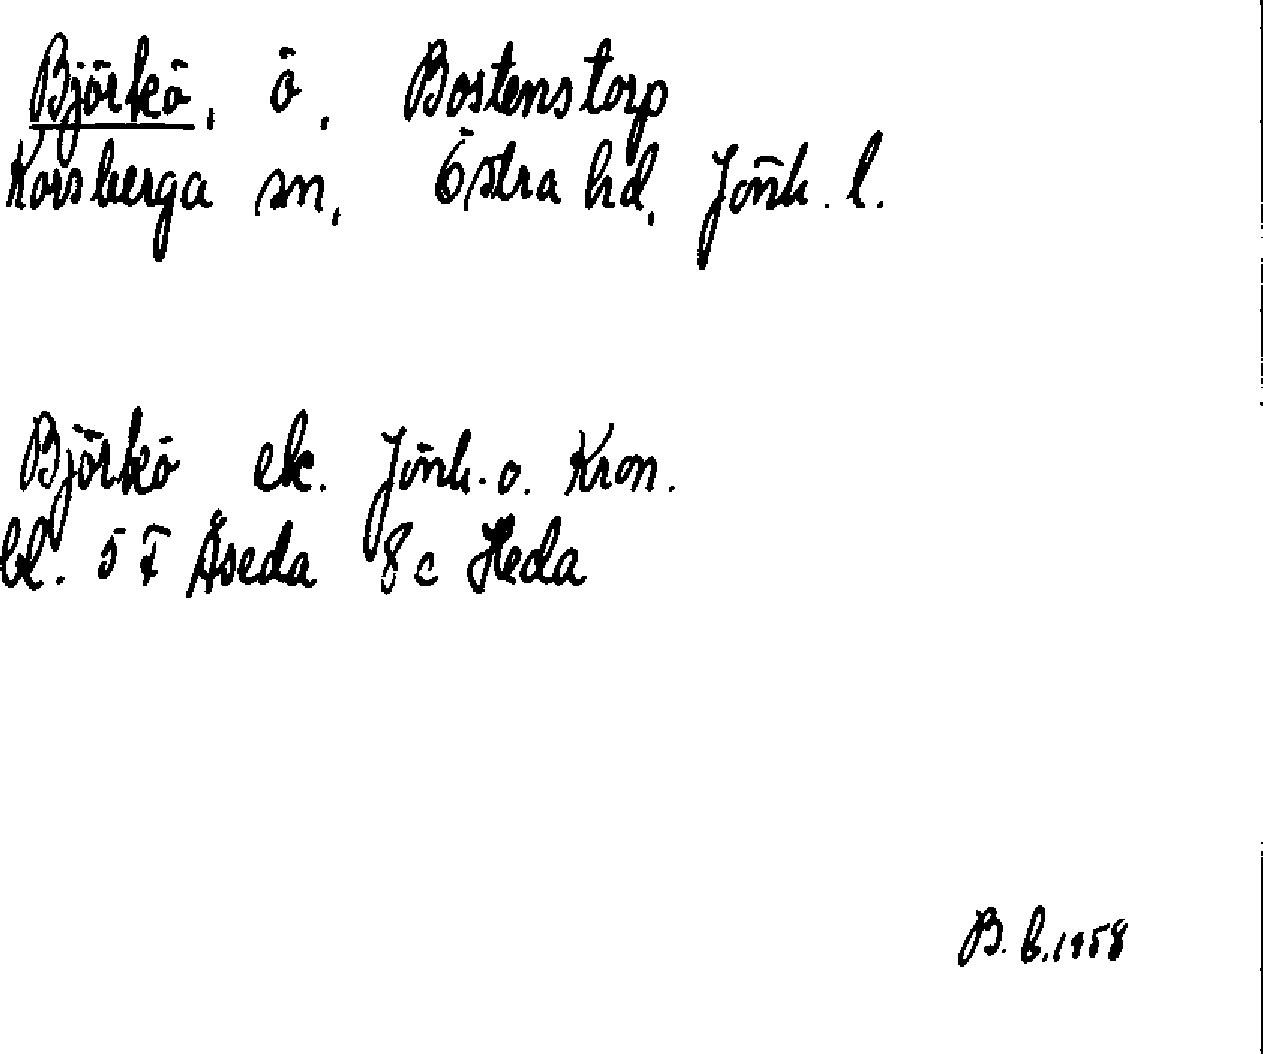 Björkö, ö, Bostenstorp
Korsberga sn, Östra hd, Jönk. l.
Björkö ek. Jönk. o. Kron.
bl. 5 F Åseda 8 c Heda
B. E. 1958